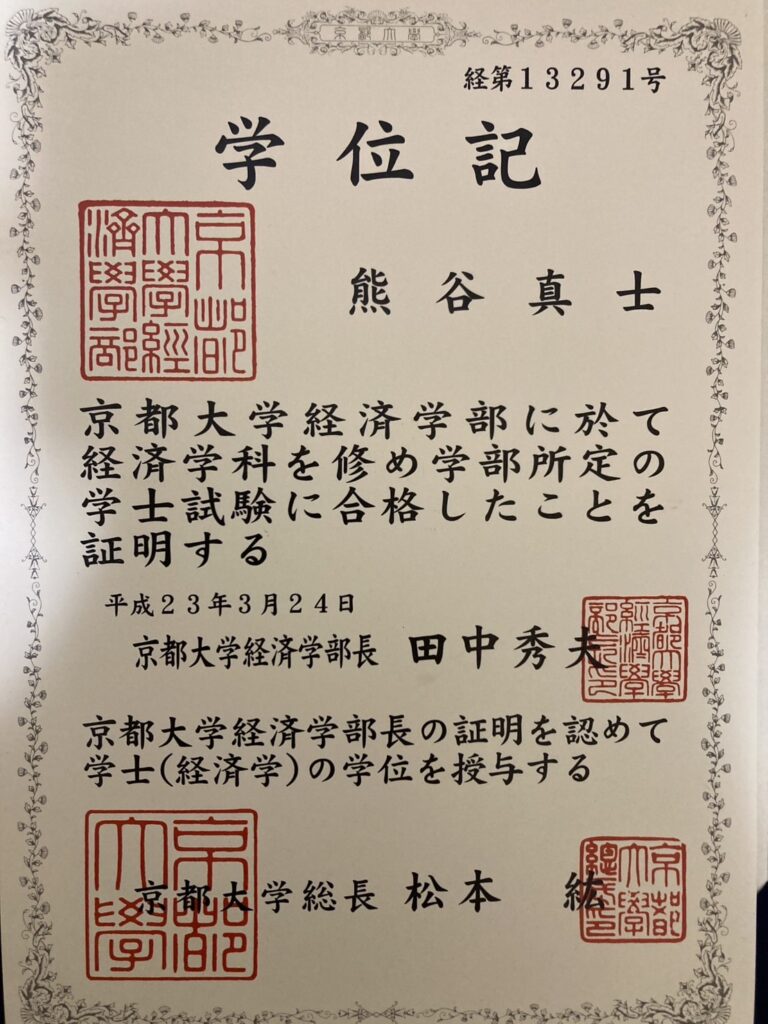 京都大學
経第13291号
学位記
京都大學經濟學部
熊谷真士
京都大学経済学部に於て
経済学科を修め学部所定の
学士試験に合格したことを
証明する
平成23年3月24日
京都大学経済学部長 田中秀夫
京都大学経済学部長の証明を認めて
学士(経済学)の学位を授与する
京都大學
京都大学総長 松本 紘